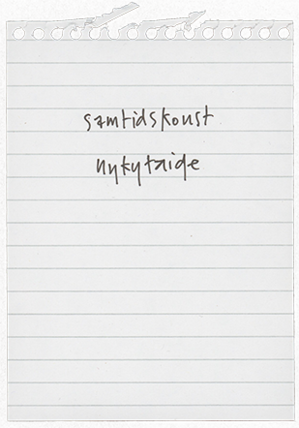 samtidskonst
nykytaide